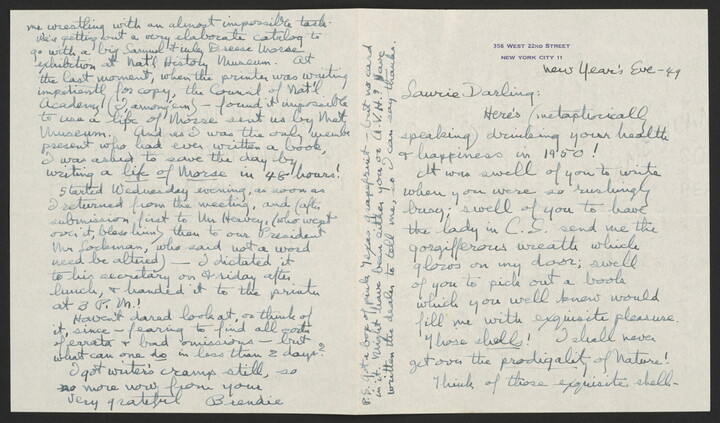 356 WEST 22ND STREET
NEW YORK CITY 11
New Year's Eve - 49
Laurie Darling:
Here's (metaphorically
speaking) drinking your health
& happiness in 1950!
It was swell of you to write
when you were so rushingly
busy; swell of you to have
the lady in C.S. send me the
gorgifferous wreath which
glows on my door; swell
of you to pick out a book
which you well knew would
fill me with exquisite pleasure.
Those shells! I shall never
get over the prodigality of Nature!
Think of those exquisite shell-
me wrestling with an almost impossible task.
getting out a very elaborate catalog to
go with a big Samuel Finley Breese Morse
exhibition at Nat'l History Museum. At
the last moment, when the printer was waiting
impatiently for copy, the Council of Nat'l
Academy (I among 'em) - found it impossible
to use a life of Morse sent us by Met.
Museum. And as I was the only member
present who had ever written a book,
I was asked to save the day by
writing a life of Morse in 48 hours!
Started Wednesday evening, as soon as
I returned from the meeting, and (after
submission first to Mr Heavey, (who went
over it, bless him) then to our President
Mr , who said not a word
need be altered) - I dictated it
to his secretary on Friday after
lunch, & handed it to the printer
at 3 P.M.!
Haven't dared look at, or think of
it, since - fearing to find all sorts
of errata & bad omissions - but
what can one do in less than 2 days?
I got writer's cramp still, so
no more now from your
very grateful Brendie
P.S. Got a box of pink Texas grapefruit - but no card
in it. Might have been either you or A.V.H.! Have
written the dealer to tell me, so I can say thanks.